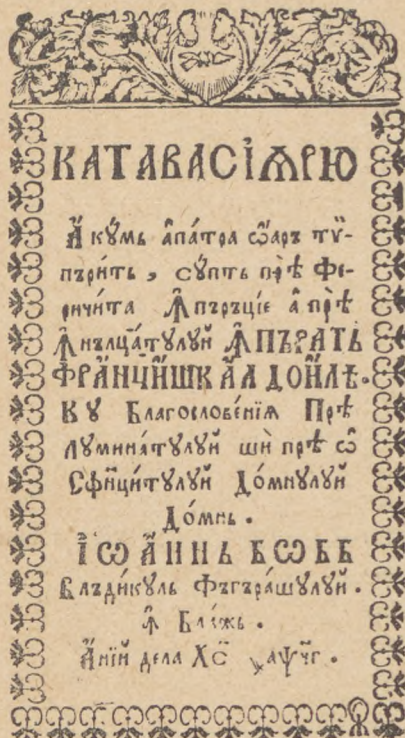 КАТАВАСЇѦРЮ
А҆кꙋ́мь а҆па́тра ѡ҆аръ ти-
пъри́ть, сꙋ́пть прѣ̀ Фе-
ричи́та Ꙟ҆пъръціе а҆ прѣ̀
Ꙟ҆нълца́тꙋлꙋй Ꙟ҆ПЪРАТЬ
ФРА́НЧИШК А҆Л ДО́ИЛѢ.
Кꙋ Благослове́нїѧ Прѣ
Лꙋмина́тꙋлꙋй ши прѣ ѡ҆
Сфинци́тꙋлꙋй До́мнꙋлꙋй
До́мнь.
ІѠА́ННЬ БѠББ
Влъди́кꙋль Фъгъра́шꙋлꙋй.
Ꙟ҆ Бла́жь.
А҆нїй дела Хс҃ ҂аѱч҃г.